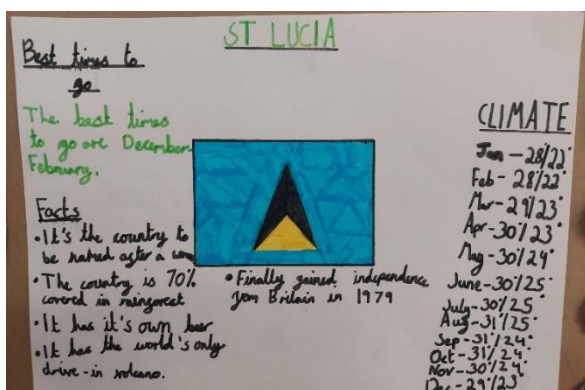 ST LUCIA
Best times to
go
The best times
to go are December
February.
Facts
• It's the country to
be named after a
• The country is 70%
covered in rainforest
• It has it's own beer
• It has the world's only
drive-in volcano.
• Finally gained independence
from Britain in 1979
CLIMATE
Jan - 28/22°
Feb - 28/22°
Mar - 29/23°
Apr - 30/23°
May - 30/24°
June - 30/25°
July - 30/25°
Aug - 31/25°
Sep - 31/24°
Oct - 31/24°
Nov - 30/24°
Dec - 29/23°